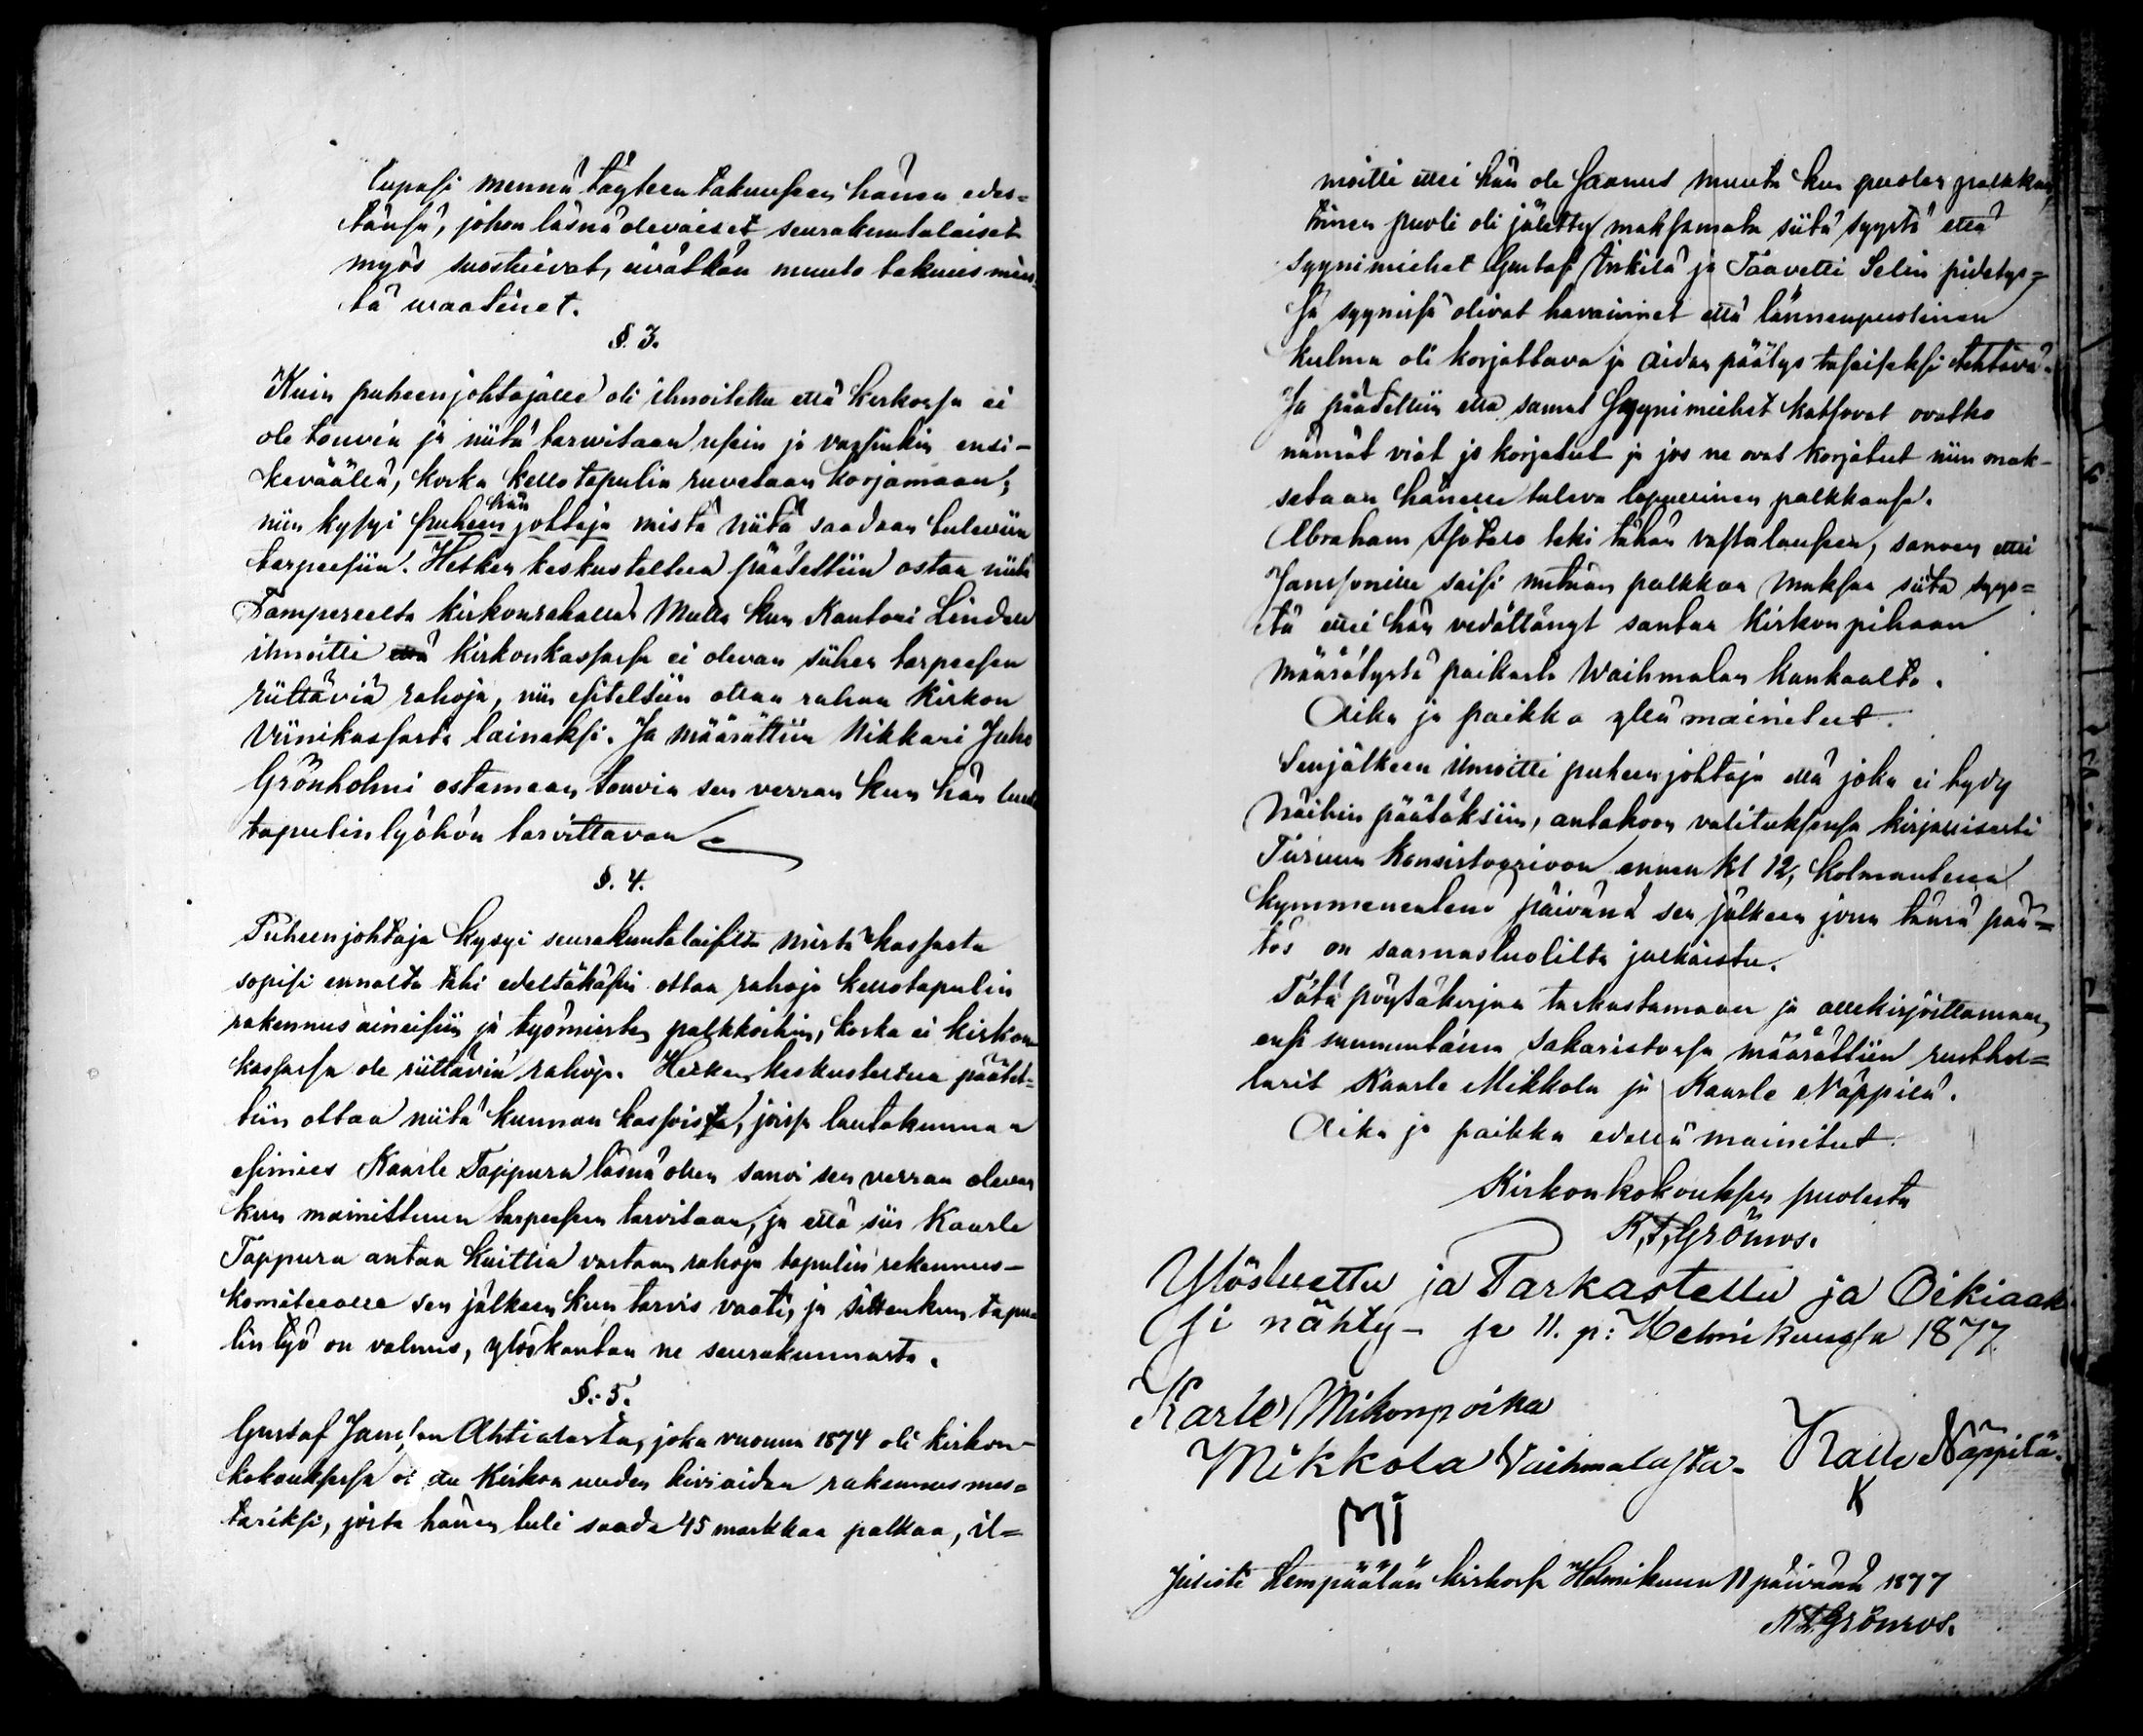 lupasi mennä täyteen takuuseen hänen edes=
tänsä, johon läsnäolevaiset seurakuntalaiset
myös suostuivat, eivätkän muuta takuusmies-
tä waatinet.
§. 3.
Kuin puheenjohtajalle oli ilmoitettu että kirkossa ei
ole touvia ja niitä tarwitaan usein ja varsinkin ensi-
keväällä, koska kellotapulia ruvetaan korjamaan;
niin kysyi hän puheenjohtaja mistä niitä saadaan tulewiin
tarpeesiin. Hetken keskusteltua päätettiin ostaa niitä
Tampereelta kirkonrahalla. Mutta kun Kanttori Lindell
ilmoitti että kirkonkassassa ei olevan siihen tarpeesen
riittäviä rahoja, niin esiteltiin ottaa rahaa kirkon
Viinikassasta lainaksi. Ja määrättiin Nikkari Juho
Grönholmi ostamaan touvia sen verran kun hän luulee
tapulinlyöhön tarvittavan.
§. 4.
Puheenjohtaja kysyi seurakuntalaisilta mistä kassasta
sopisi ennalta eli edeltäkäsin ottaa rahoja kellotapulin
rakennusaineisiin ja työmiesten palkkoihin, koska ei kirkon
kassassa ole riittäviä rahoja. Hetken keskusteltua päätet=
tiin ottaa niitä kunnan kassoista, joissa lautakunnan
esimies Kaarle Tappura läsnä ollen sanoi sen verran olevan
kun mainittuun tarpeesen tarvitaan, ja että siis Kaarle
Tappura antaa kuittia vastaan rahoja tapulin rakennus-
komiteealle sen jälkeen kun tarvis vaatii, ja sittenkun tapu-
lin työ on valmis, ylöskantaa ne seurakunnasta.
§. 5.
Gustaf Jansson Ahtialasta, joka vuonna 1874 oli kirkon-
kokouksessa otettu Kirkon uuden kiviaidan rakennusmes=
tariksi, josta hänen tuli saada 45 markkaa palkaa, il=
moitti ettei hän ole saanut muuta kun puolen palkkan,
toinen puoli oli jätetty maksamata siitä syystä että
syynimiehet Gustaf Inkilä ja Taavetti Selin pidetys=
sä syynissä olivat havainnet että lännenpuolinen
kulma oli korjattava ja aidan päälys tasaiseksi tehtävä.
Ja päätettiin että samat syynimiehet katsovat ovatko
nämät viat jo korjatut ja jos ne ovat korjatut niin mak-
setaan hänelle tuleva lopullinen palkkansa.
Abraham Isotalo teki tähän vastalauseen, sanoen ettei
Janssonille saisi mitään palkkaa maksaa siitä syys=
tä ettei hän vedättängt santaa Kirkonpihaan
määrätystä paikasta Waihmalan kankaalta.
Aika ja paikka yllä mainitut.
Senjälkeen ilmoitti puheenjohtaja että joka ei tydy
Näihin päätöksiin, antakoon valituksensa kirjallisesti
Turuun Konsistoorioon ennen kl 12, kolmantena
kymmenentenä päivänä sen jälkeen jona tämä pää=
tös on saarnastuolilta julkaistu.
Tätä pöytäkirjaa tarkastamaan ja allekirjoittamaan
ensi sunnuntaina Sakaristossa määrättiin rusthol=
larit Kaarle Mikkola ja Kaarle Näppilä.
Aika ja paikka edellä mainitut.
Kirkonkokouksen puolesta
K,F,Grönros.
Ylösluettu ja Tarkastettu ja Oikiaak
si nähty- se 11. p: Helmikuussa 1877.
Karle Mikonpoika
Mikkola Vaihmalasta- Kalle Näppilä.
MI K
Julisti Lempäälän kirkossa Helmikuun 11 päivänä 1877
K.F.Grönros.